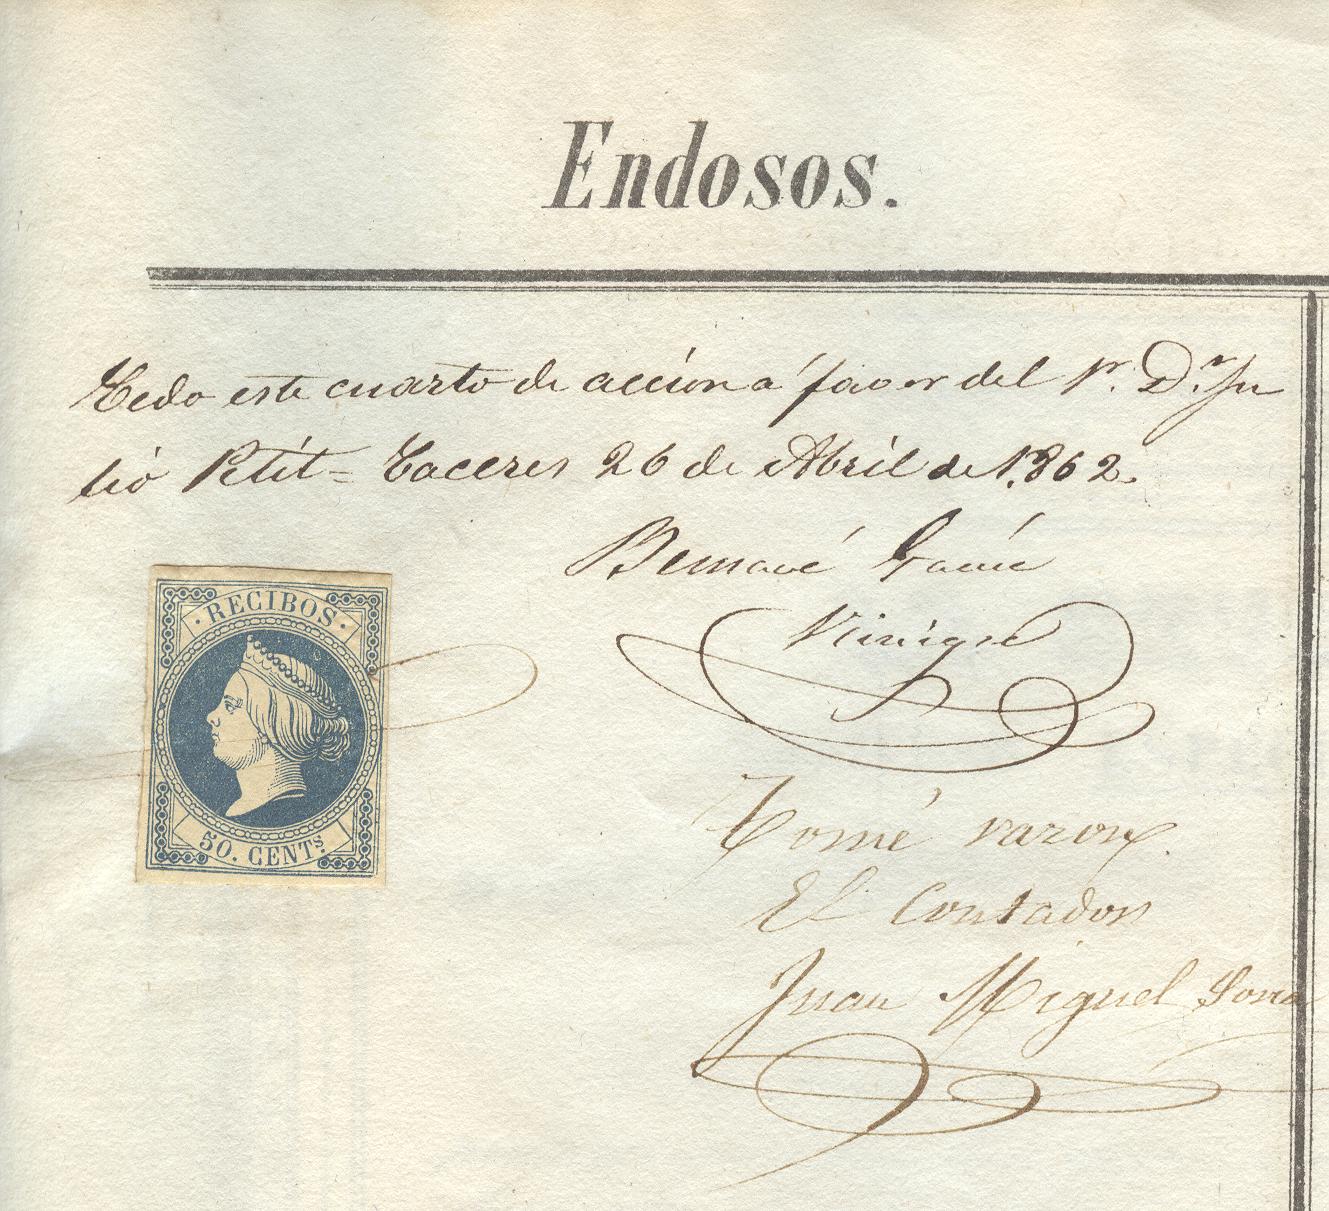 Endosos.
Cedo este cuarto de acción á favor del Sr. Dn. Ju
lio Petit = Caceres 26 de Abril de 1.862.
Bernavé García
Viniegra
· RECIBOS ·
50. CENTs.
Tomé razon
El Contador
Juan Miguel Soria